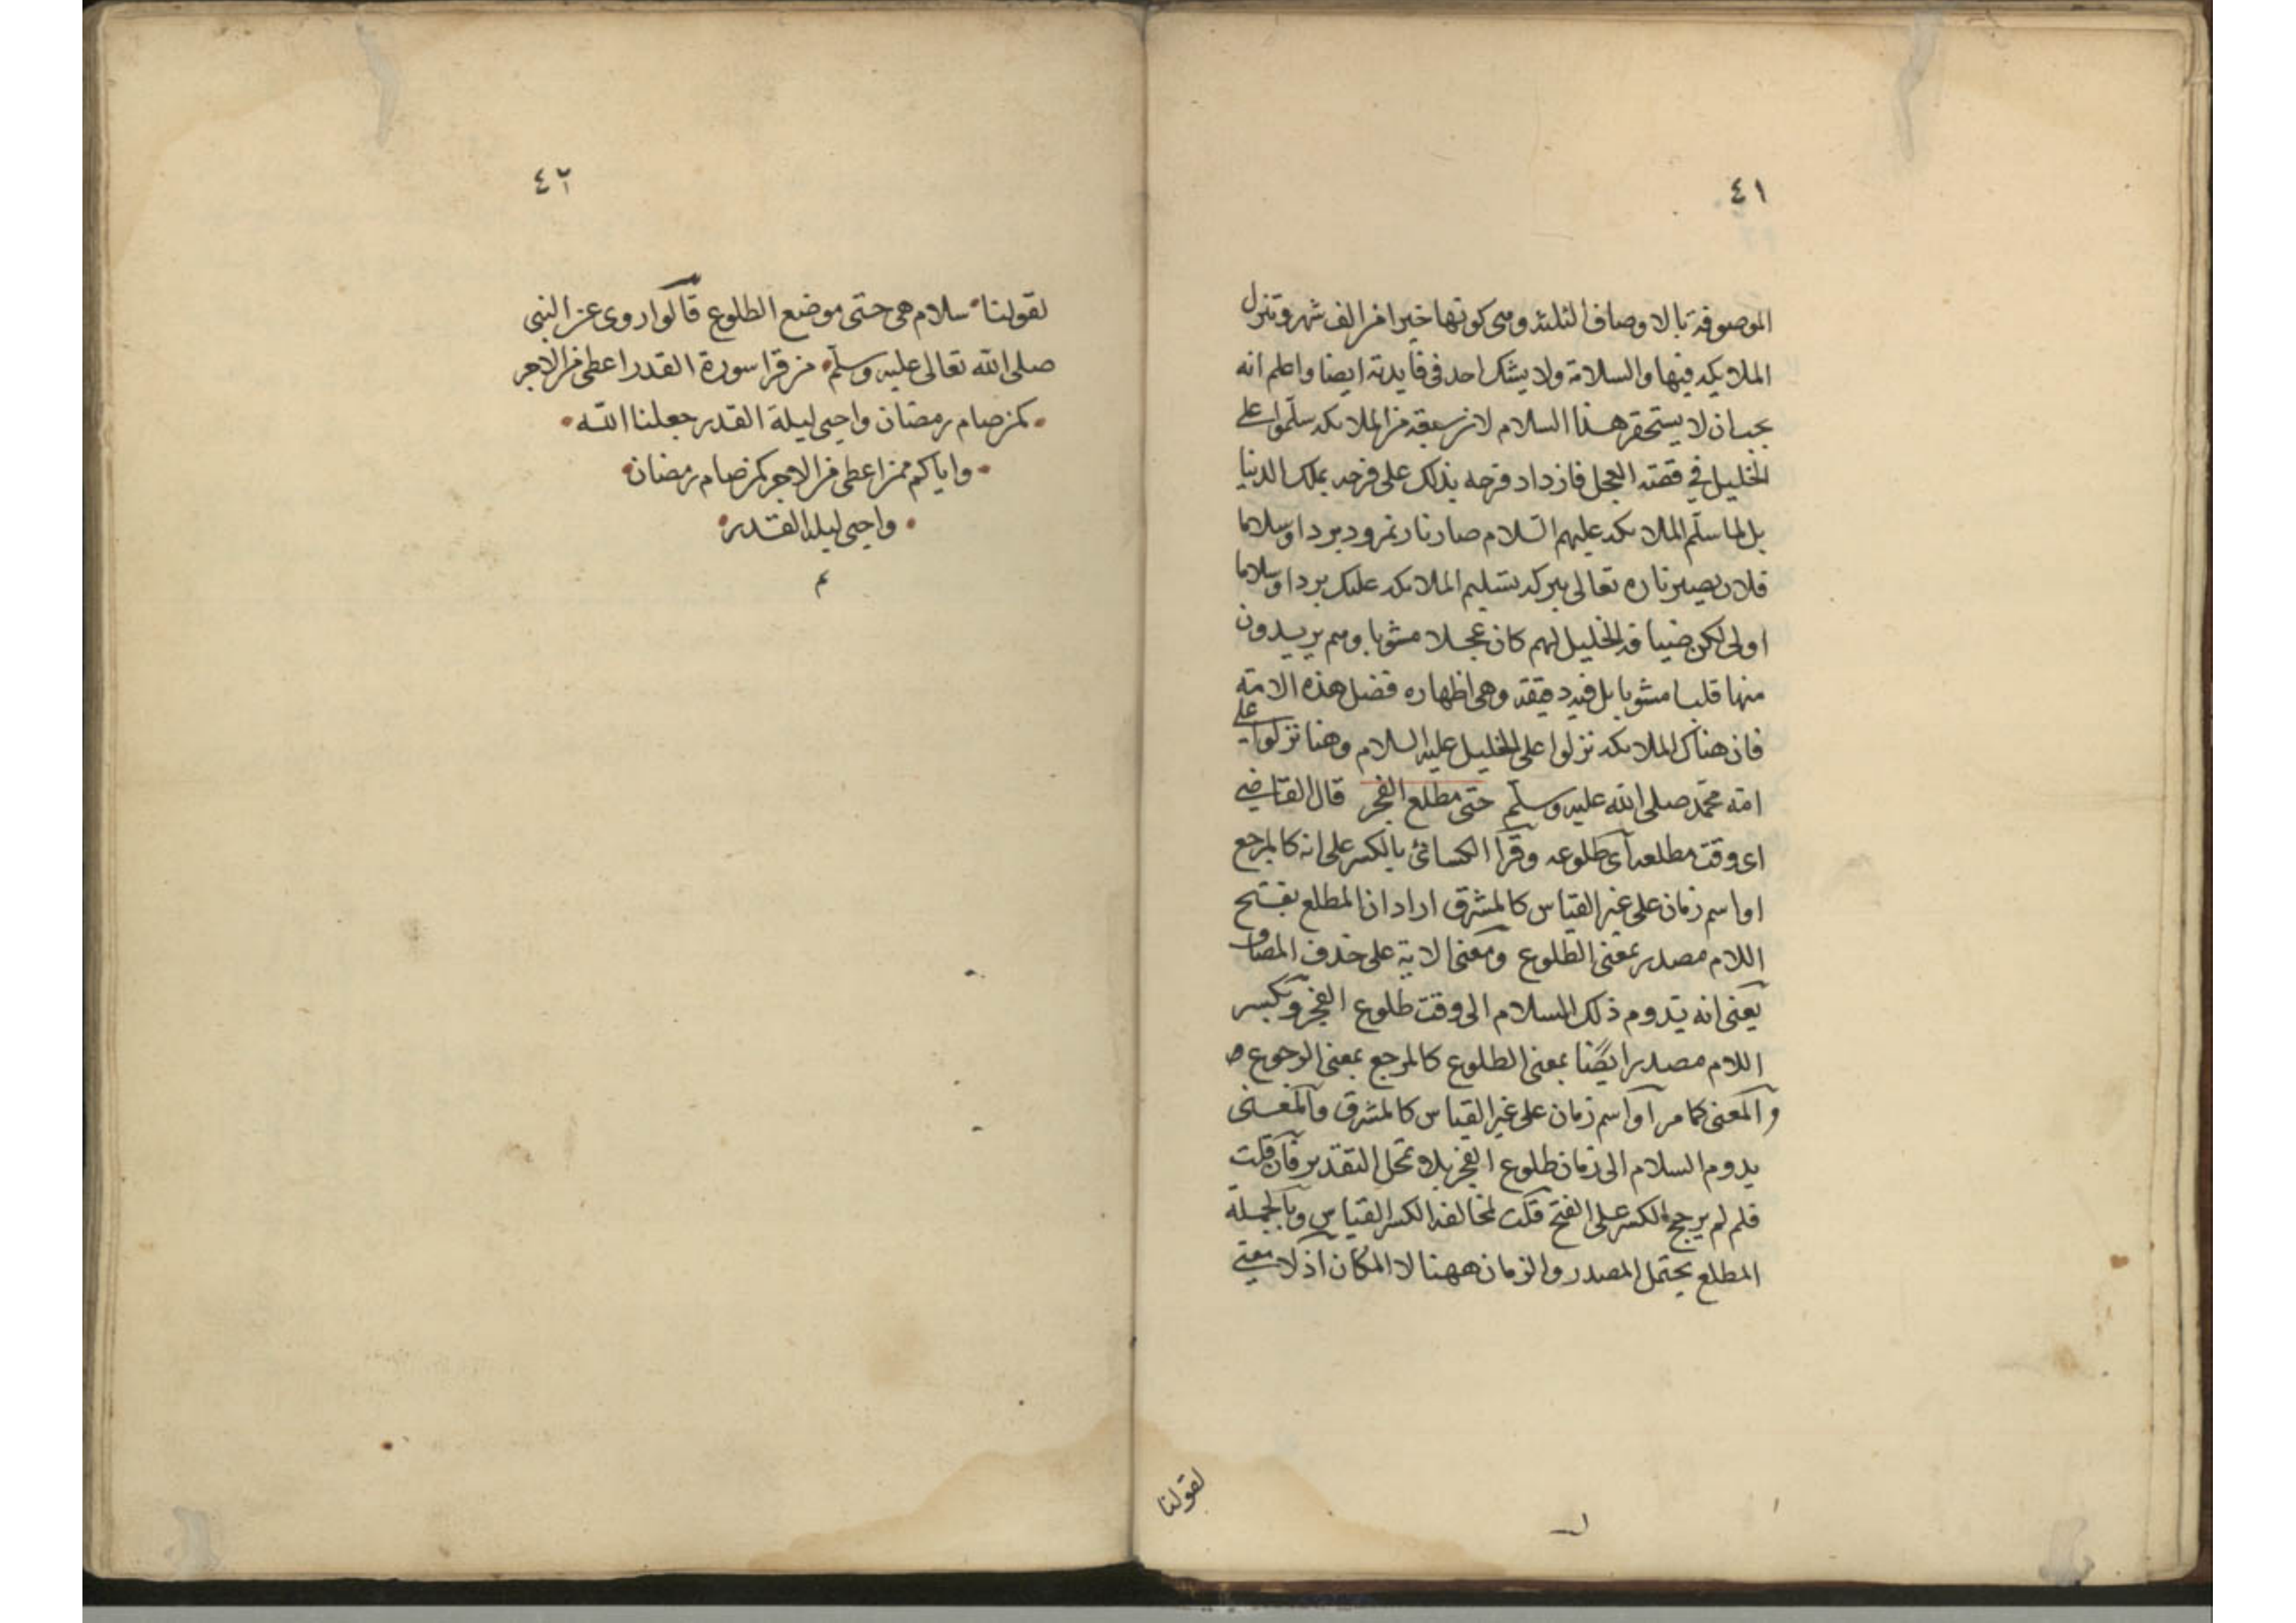 ٤١
الموصوفة بالاوصاف الثلثة ومى كونها خيرا من الف شهر وتنزل
الملايكه فيها والسلامة ولا يشك احد فى فايدته ايضا واعلم انه
يجب ان لا يستحقر هذا السلام لان سبعة من الملائكه سلموا على
الخليل في قصة العجل فازداد فرحه بذلك على فرحه بملك الدنيا
بل لما سلم الملائكه عليهم السلام صار نار نمرود بردا وسلاما
فلان يصير ناره تعالى ببركة تسليم الملائكه عليك بردا وسلاما
اولى لكن ضيافة الخليل لهم كان عجلا مشويا ومم يريدون
منها قلبا مشويا بل فيه دقيقة وهى اظهاره فضل هذه الامة
فان هناك الملائكه نزلوا على الخليل عليه السلام وهنا نزلوا على
امة محمد صلى الله عليه وسلم حتى مطلع الفجر قال القاضى
اى وقت مطلعه اى طلوعه وقرأ الكسائى بالكسر على انه كالمرجع
او اسم زمان على غير القياس كالمشرق اراد ان المطلع بفتح
اللام مصدر بمعنى الطلوع ومعنى الاية على حذف المضاف
يعنى انه يدوم ذلك السلام الى وقت طلوع الفجر وبكسر
اللام مصدر ايضا بمعنى الطلوع كالمرجع بمعنى الرجوع
والمعنى كما مر او اسم زمان على غير القياس كالمشرق والمعنى
يدوم السلام الى زمان طلوع الفجر بلا تمحل التقدير فان قلت
فلم لم يرجح الكسر على الفتح قلت لمخالفة الكسر القياس وبالجملة
المطلع يحتمل المصدر والزمان ههنا لا المكان اذ لا معنى
لقولنا
٤٢
لقولنا سلام هى حتى موضع الطلوع قالوا روى عن النبى
صلى الله تعالى عليه وسلم من قرا سورة القدر اعطى من الاجر
كمن صام رمضان واحيى ليلة القدر جعلنا الله
واياكم ممن اعطى من الاجر كمن صام رمضان
واحيى ليلة القدر
م